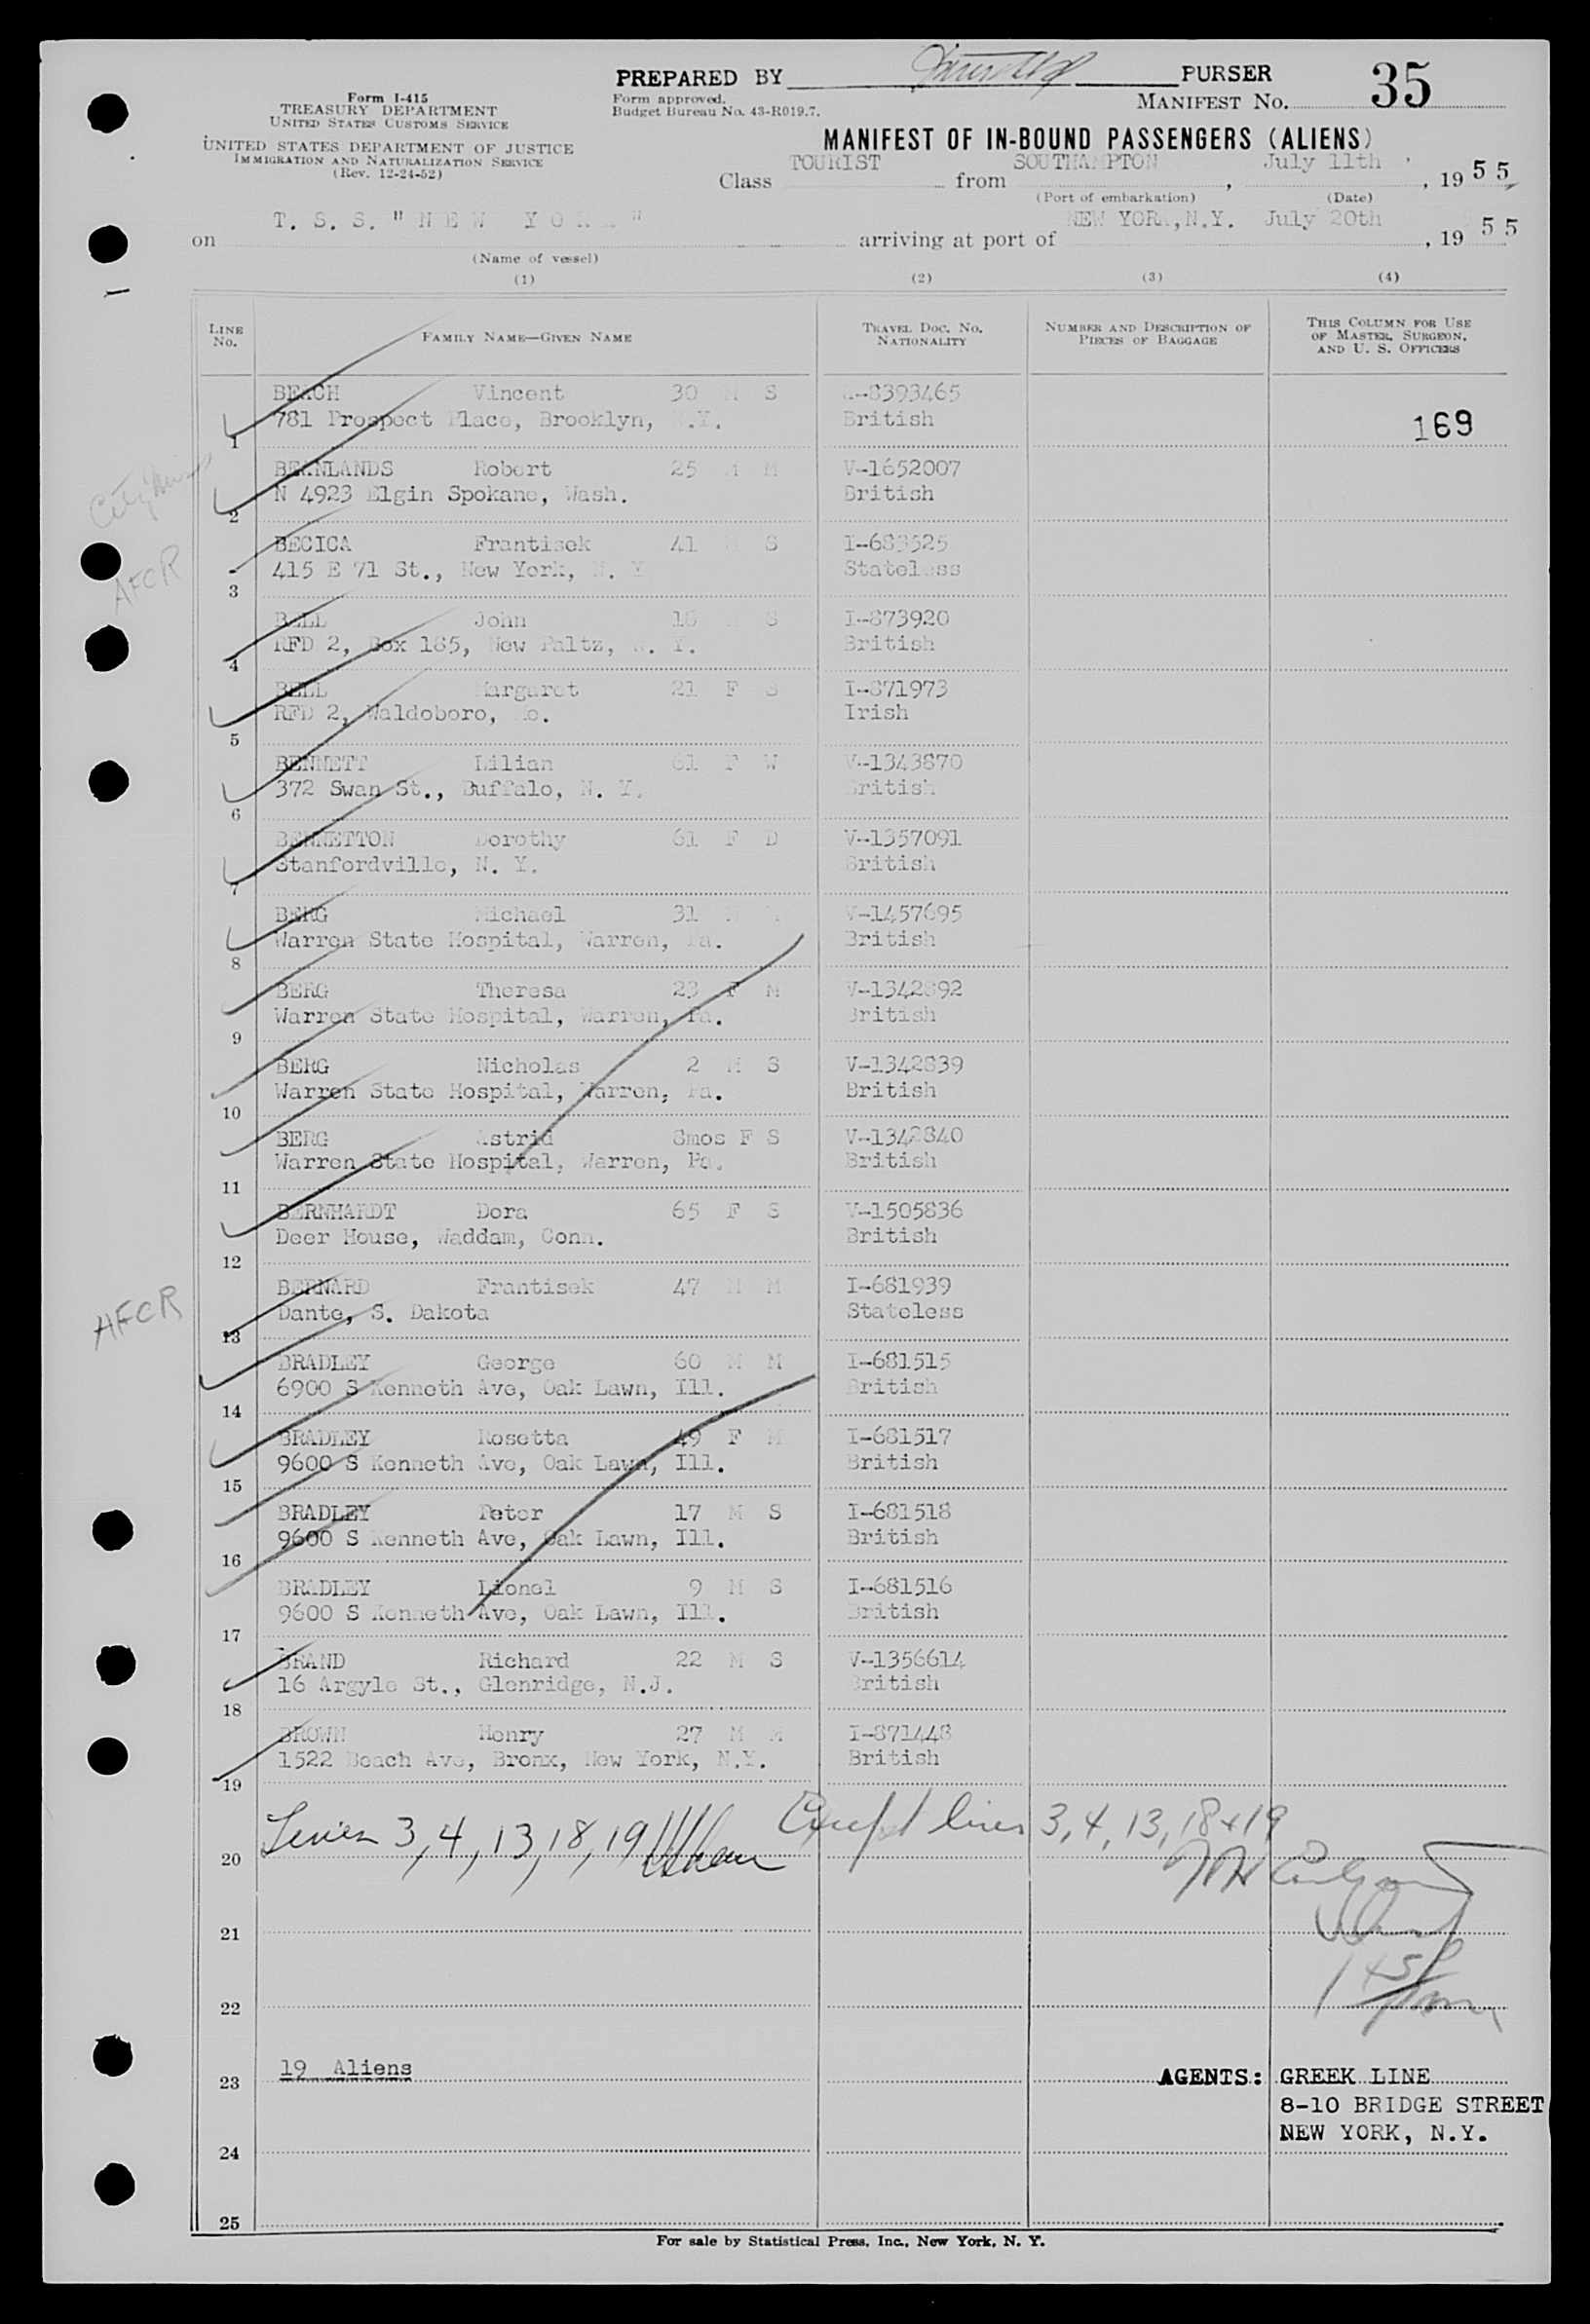 PREPARED BY PURSER
Form I-415
TREASURY DEPARTMENT
UNITED STATES CUSTOMS SERVICE
UNITED STATES DEPARTMENT OF JUSTICE
IMMIGRATION AND NATURALIZATION SERVICE
(Rev. 12-24-52)
Form approved.
Budget Bureau No. 43-R019.7.
MANIFEST NO. 35
MANIFEST OF IN-BOUND PASSENGERS (ALIENS)
Class TOURIST from SOUTHAMPTON, July 11th, 1955
(Port of embarkation) (Date)
on T. S. S. "NEW YORK" arriving at port of NEW YORK, N.Y. July 20th, 1955
(Name of vessel)
(1) (2) (3) (4)
LINE NO. FAMILY NAME—GIVEN NAME TRAVEL DOC. NO. NATIONALITY NUMBER AND DESCRIPTION OF PIECES OF BAGGAGE THIS COLUMN FOR USE OF MASTER, SURGEON, AND U. S. OFFICERS
BEACH Vincent 30 M S 8393465
781 Prospect Place, Brooklyn, N.Y. British 169
1
BEANLANDS Robert 25 M M V-1652007
N 4923 Elgin Spokane, Wash. British
2
BECICA Frantisek 41 M S I-683525
415 E 71 St., New York, N. Y Stateless
3
AFCR
BELL John S I-873920
RFD 2, Box 185, New Paltz, N. Y. British
4
BELL Margaret 21 F S I-871973
RFD 2, Waldoboro, Me. Irish
5
BENNETT Lilian 61 F W V-1343870
372 Swan St., Buffalo, N. Y. British
6
BENNETTON Dorothy 61 F D V-1357091
Stanfordville, N. Y. British
7
BERG Michael 31 M M V-1457695
Warren State Hospital, Warren, Pa. British
8
BERG Theresa 23 F M V-1342892
Warren State Hospital, Warren, Pa. British
9
BERG Nicholas 2 M S V-1342839
Warren State Hospital, Warren, Pa. British
10
BERG Astrid 8mos F S V-1342840
Warren State Hospital, Warren, Pa. British
11
BERNHARDT Dora 65 F S V-1505836
Deer House, Waddam, Conn. British
12
BERNARD Frantisek 47 M M I-681939
AFCR
Dante, S. Dakota Stateless
13
BRADLEY George 60 M M I-681515
6900 S Kenneth Ave, Oak Lawn, Ill. British
14
BRADLEY Rosetta 49 F M I-681517
9600 S Kenneth Ave, Oak Lawn, Ill. British
15
BRADLEY Peter 17 M S I-681518
9600 S Kenneth Ave, Oak Lawn, Ill. British
16
BRADLEY Lionel 9 M S I-681516
9600 S Kenneth Ave, Oak Lawn, Ill. British
17
BRAND Richard 22 M S V-1356614
16 Argyle St., Glenridge, N.J. British
18
BROWN Henry 27 M M I-871448
1522 Beach Ave, Bronx, New York, N.Y. British
19
Lines 3, 4, 13, 18, 19 Except lines 3, 4, 13, 18 + 19
20
21
22
23 19 Aliens AGENTS: GREEK LINE
8-10 BRIDGE STREET
NEW YORK, N.Y.
24
25
For sale by Statistical Press, Inc., New York, N. Y.